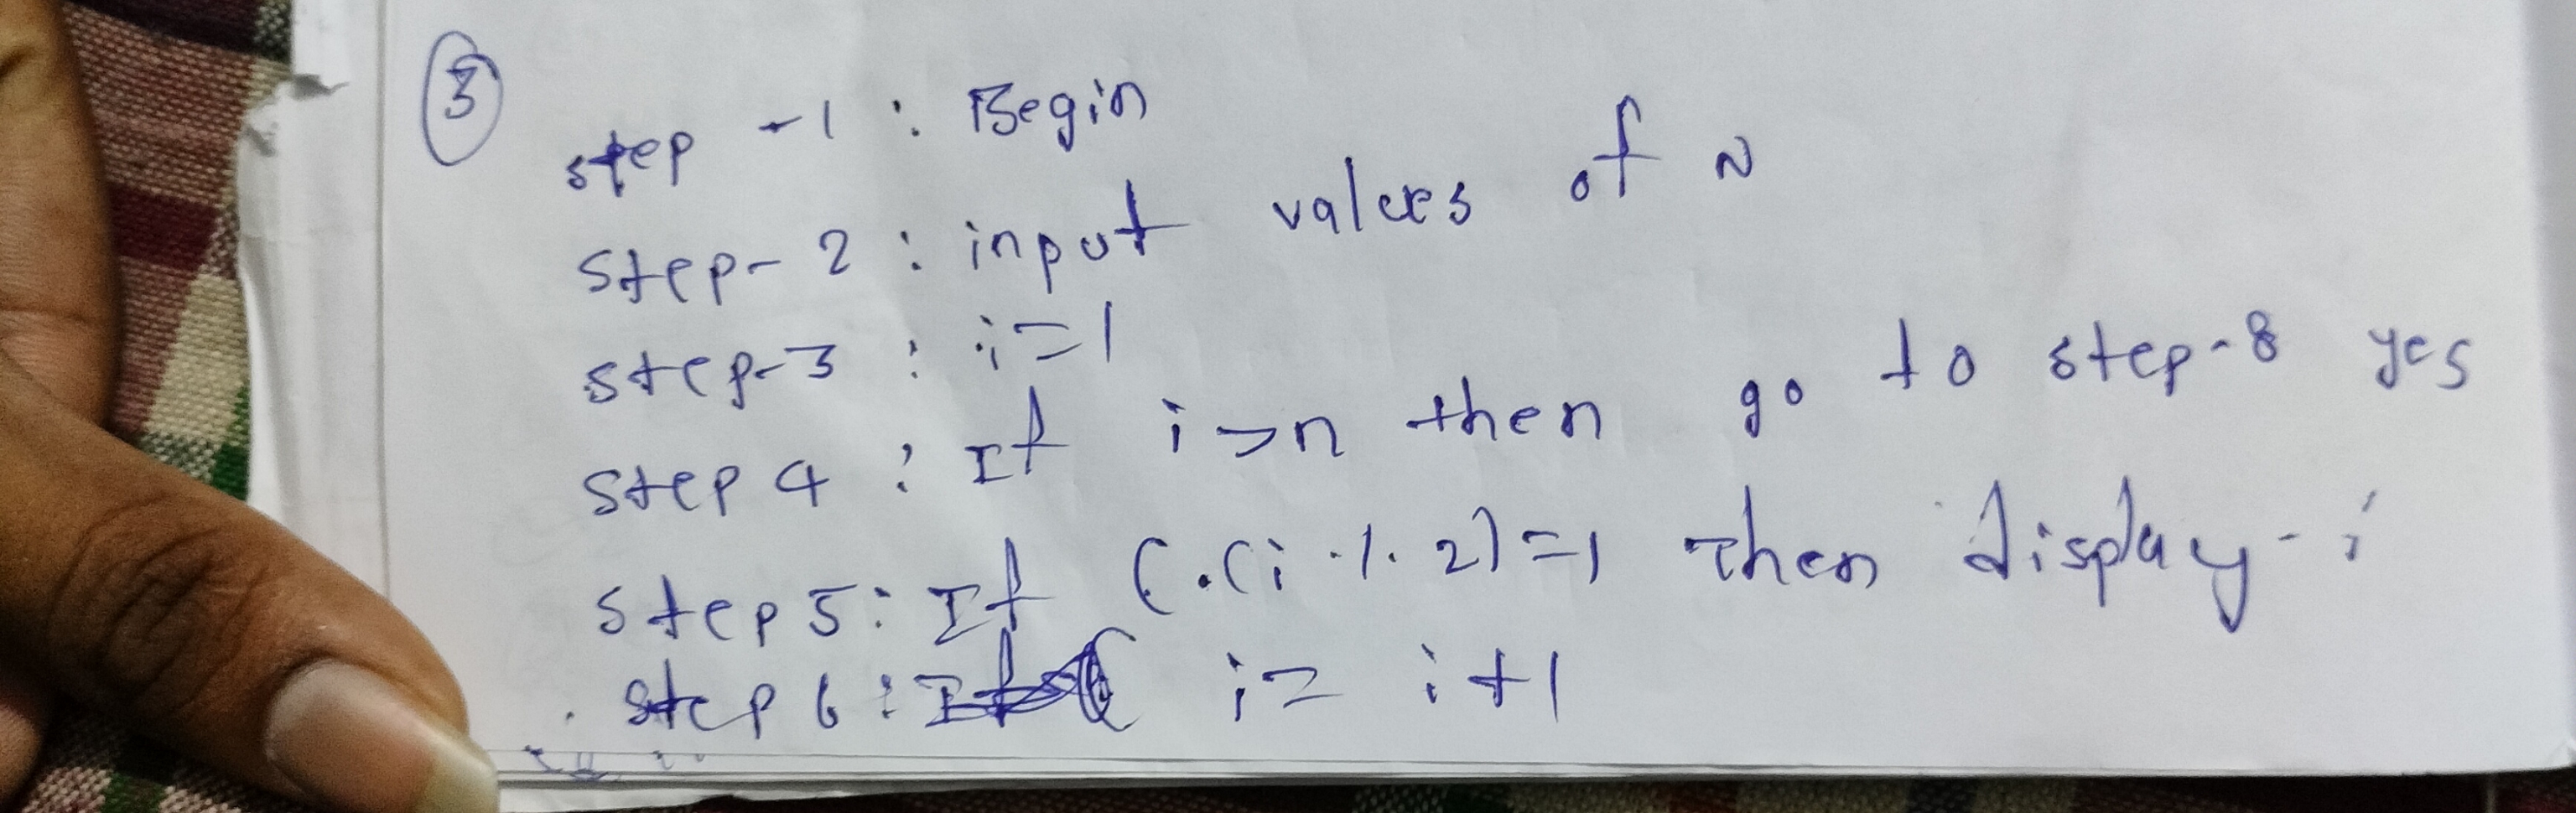 3
step -1 : Begin
step- 2 : input values of N
step-3 : i=1
step 4 : If i>n then go to step-8 yes
step 5: If ((i % 2)=1 Then display- i
step 6 : i= i+1